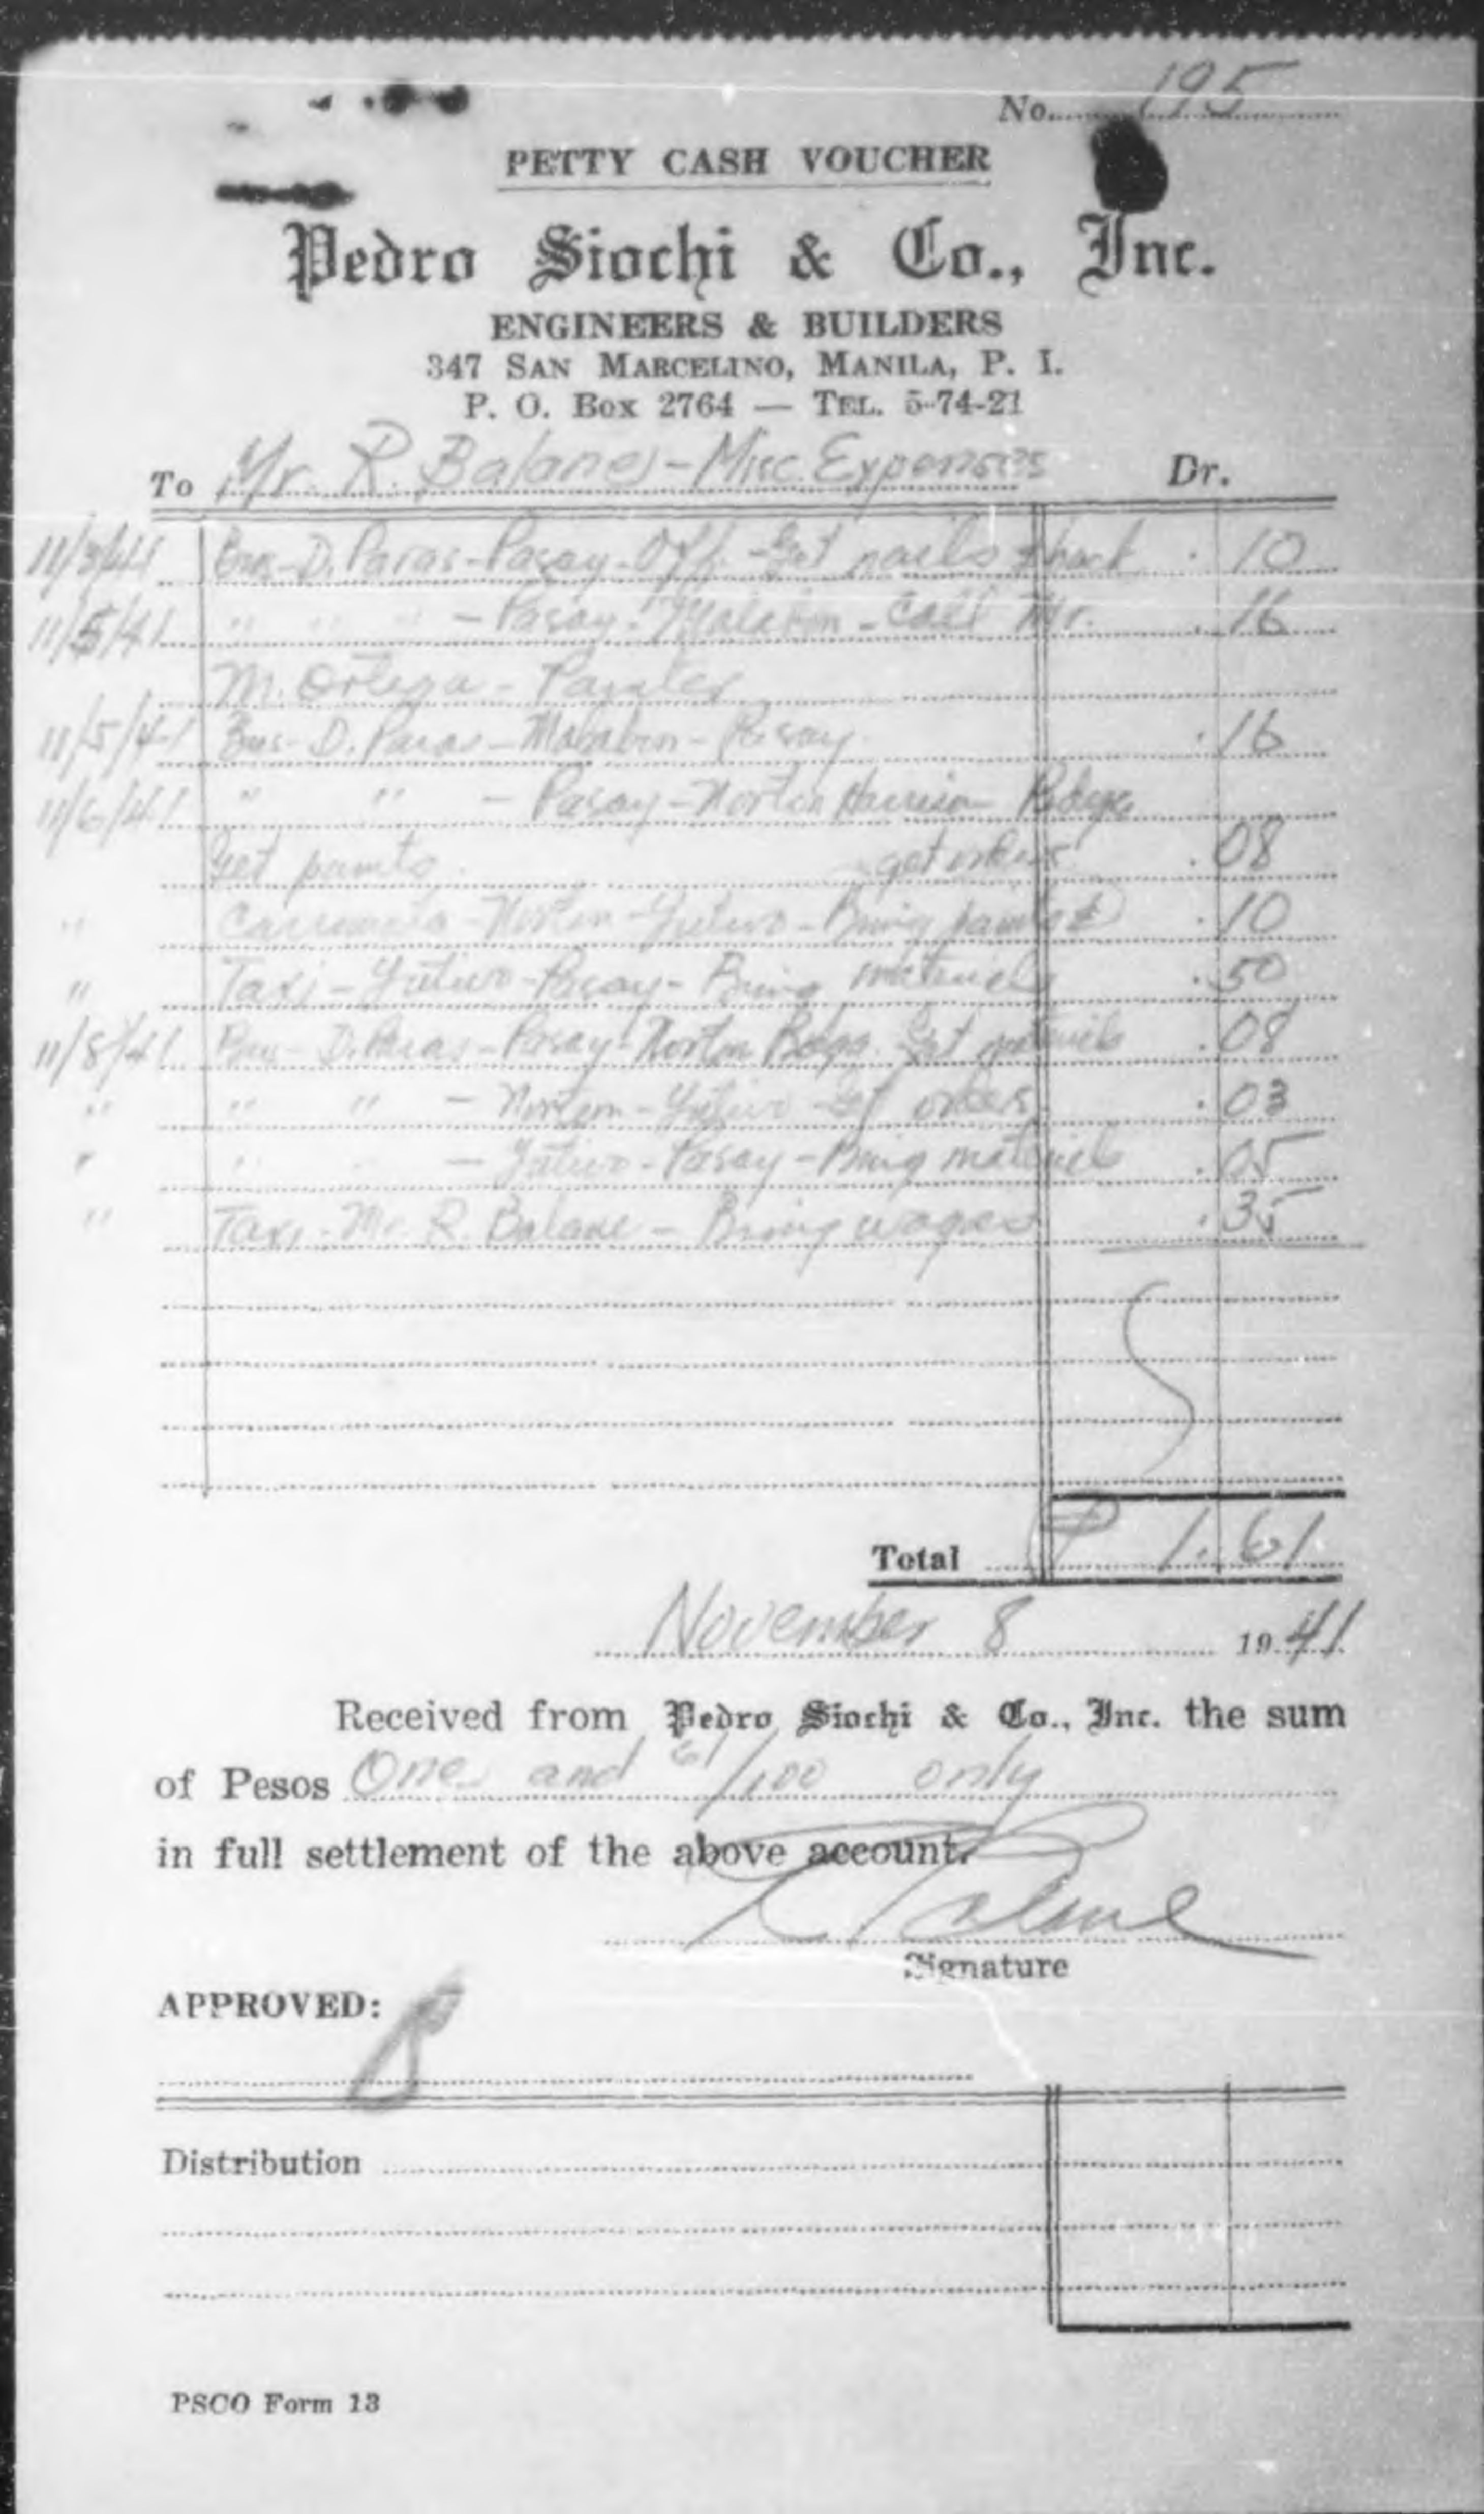 No. 195
PETTY CASH VOUCHER
Pedro Siochi & Co., Inc.
ENGINEERS & BUILDERS
347 SAN MARCELINO, MANILA, P. I.
P. O. Box 2764 — TEL. 5-74-21
To Mr. R. Balane - Misc. Expenses Dr.
11/3/41 Bus - D. Paras - Pasay - Off. - Get nails & .10
11/5/41 " " " - Pasay - Malabon - Call Mr. .16
M. Ortega - Painter
11/5/41 Bus - D. Paras - Malabon - Pasay .16
11/6/41 " " - Pasay - Norton Harrison
Get paints get orders .08
" Norton - Yutivo - Bring paints .10
" Taxi - Yutivo - Pasay - Bring materials .50
11/8/41 Bus - D. Paras - Pasay - Norton Get materials .08
" " " - Norton - Yutivo - Get orders .03
" " - Yutivo - Pasay - Bring materials .05
" Taxi - Mr. R. Balane - Bring wages .35
Total ₱ 1.61
November 8 1941
Received from Pedro Siochi & Co., Inc. the sum
of Pesos One and 61/100 only
in full settlement of the above account.
R Balane
Signature
APPROVED:
Distribution
PSCO Form 13